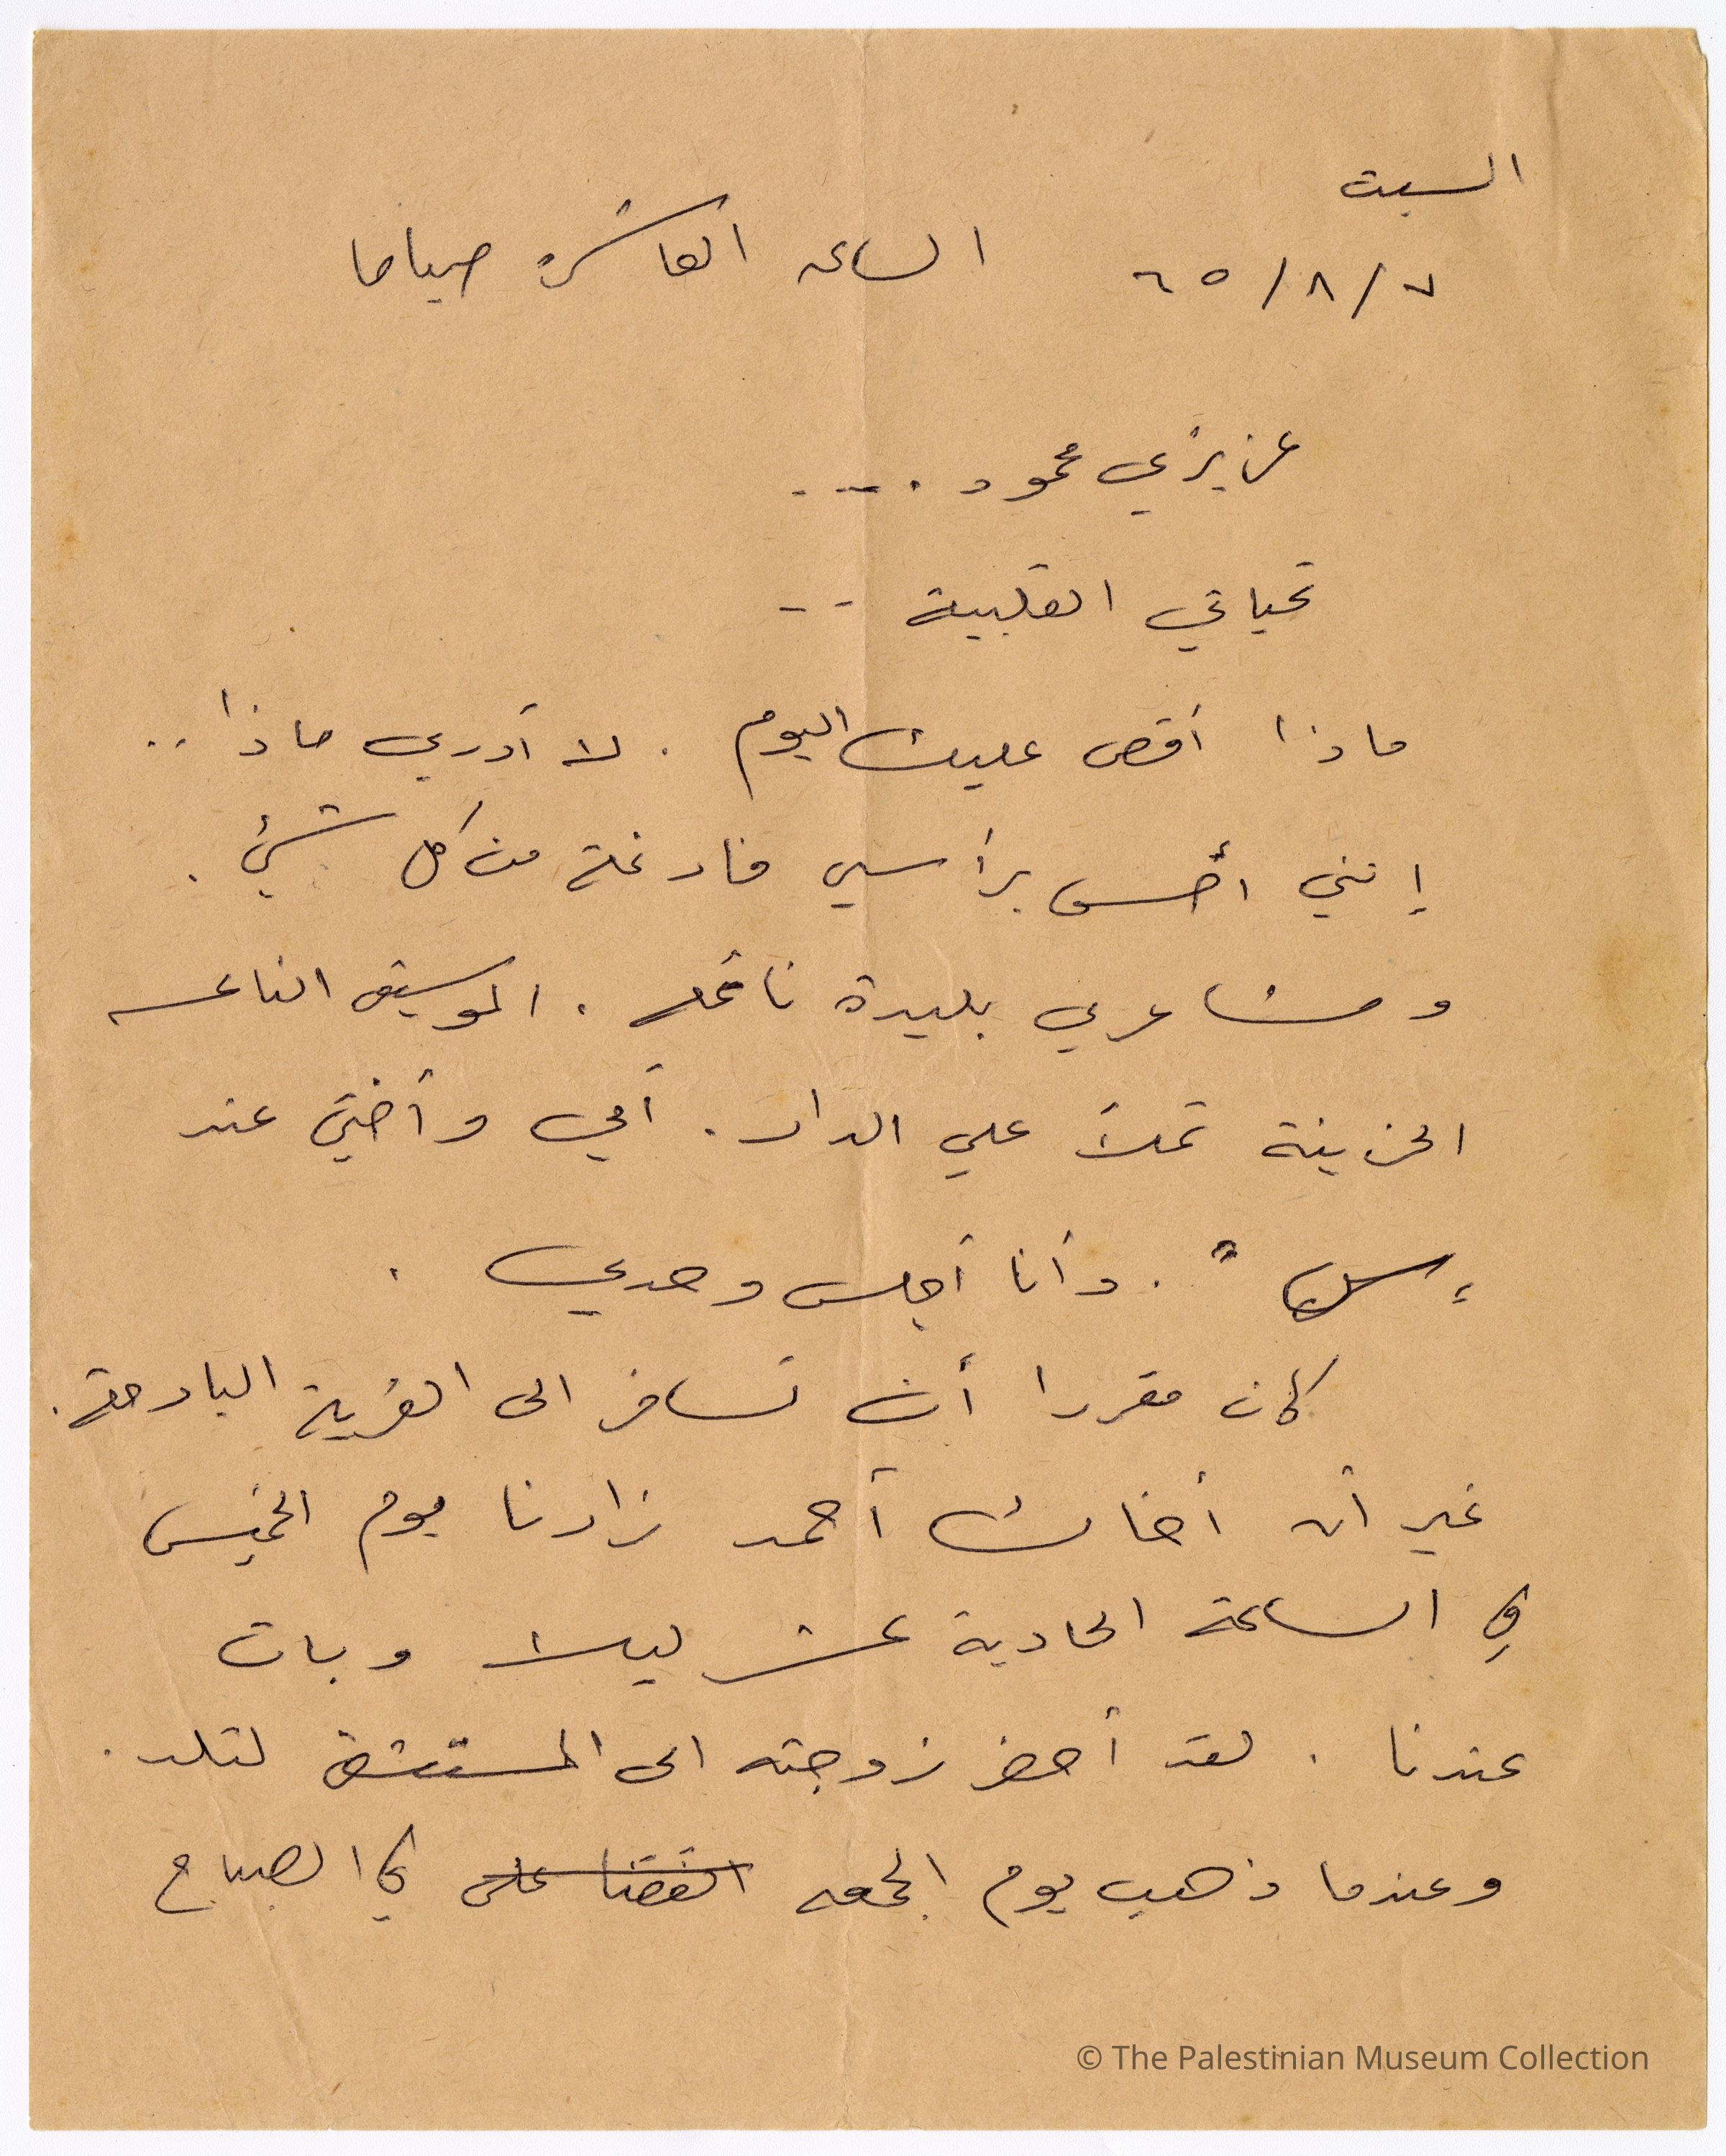 السبت
٧/٨/٦٥ الساعه العاشرة صباحا
عزيزي محمود ....
تحياتي القلبية --
ماذا أقص عليك اليوم . لا أدري ماذا ..
إنني أحس برأسي فارغة من كل شيئ .
ومشاعري بليدة نائمة . الموسيقى الناعسه
الحزينة تملأ علي الدار . أمي وأختي عند
. وأنا أجلس وحدي .
كان مقررا أن نسافر الى القرية البارحة .
غير أن أخاك أحمد زارنا يوم الخميس
في الساعة الحادية عشر ليلا وبات
عندنا . لقد أحضر زوجته الى المستشفى لتلد .
وعندما ذهب يوم الجمعه اتفقنا على في الصباح
© The Palestinian Museum Collection